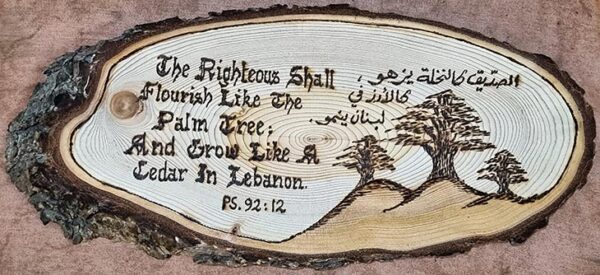 The Righteous Shall
Flourish Like The
Palm Tree;
And Grow Like A
Cedar In Lebanon.
PS. 92:12
الصديق كالنخلة يزهو ،
كالأرز في
لبنان ينمو.